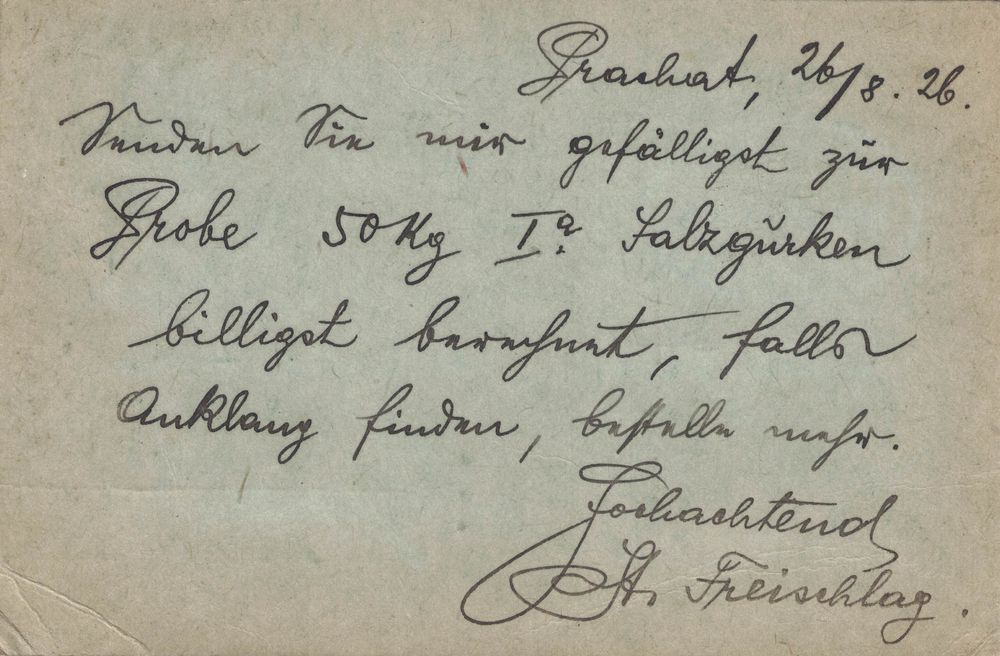 Prachat, 26/8. 26.
Senden Sie mir gefälligst zur
Probe 50 Kg Iª. Salzgurken
billigst berechnet, falls
Anklang finden, bestelle mehr.
Hochachtend
St. Freischlag.